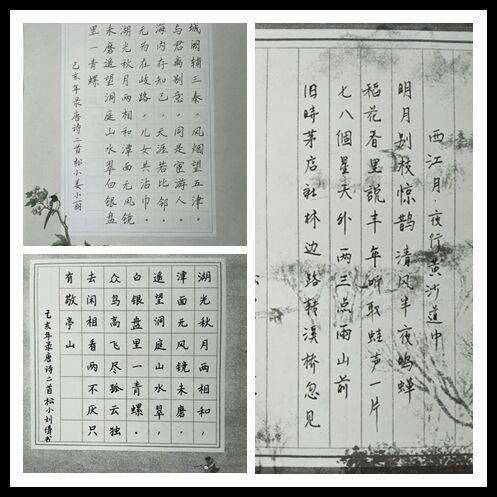 城阙辅三秦，风烟望五津。
与君离别意，同是宦游人。
海内存知己，天涯若比邻。
无为在歧路，儿女共沾巾。
湖光秋月两相和潭面无风镜
未磨遥望洞庭山水翠白银盘
里一青螺
己亥年录唐诗二首松小姜小丽
湖光秋月两相和，
潭面无风镜未磨。
遥望洞庭山水翠，
白银盘里一青螺。
众鸟高飞尽孤云独
去闲相看两不厌只
有敬亭山
己亥年录唐诗二首松小刘倩书
西江月·夜行黄沙道中
明月别枝惊鹊 清风半夜鸣蝉
稻花香里說丰年听取蛙声一片
七八個星天外 两三点雨山前
旧時茅店社林边路转溪桥忽见